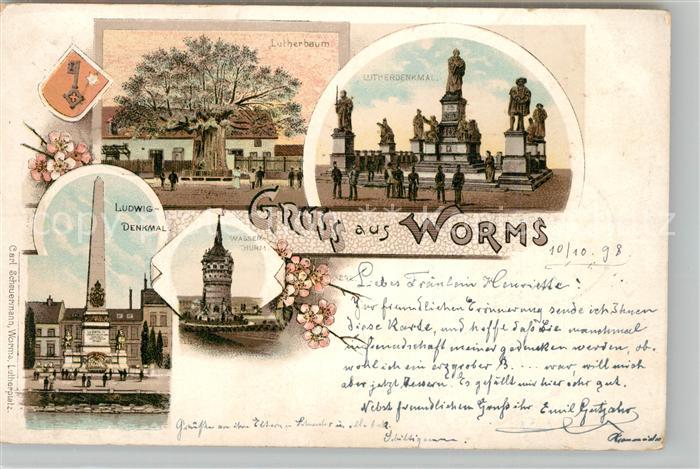 Lutherbaum
LUTHERDENKMAL.
LUDWIG-
DENKMAL
WASSER-
THURM
GRUSS aus WORMS
10/10. 98.
Liebes Fräulein Henriette!
Zur freundlichen Erinnerung sende ich Ihnen
diese Karte, und hoffe daß Sie manchmal
in Freundschaft meiner gedenken werden, ob-
wohl ich ein erzgrober B.... war, will mich
aber jetzt bessern. Es gefällt mir hier sehr gut.
Nebst freundlichem Gruß ihr Emil Gutjahr
Grüße an ihre Eltern
Carl Scheuermann, Worms, Lutherplatz.